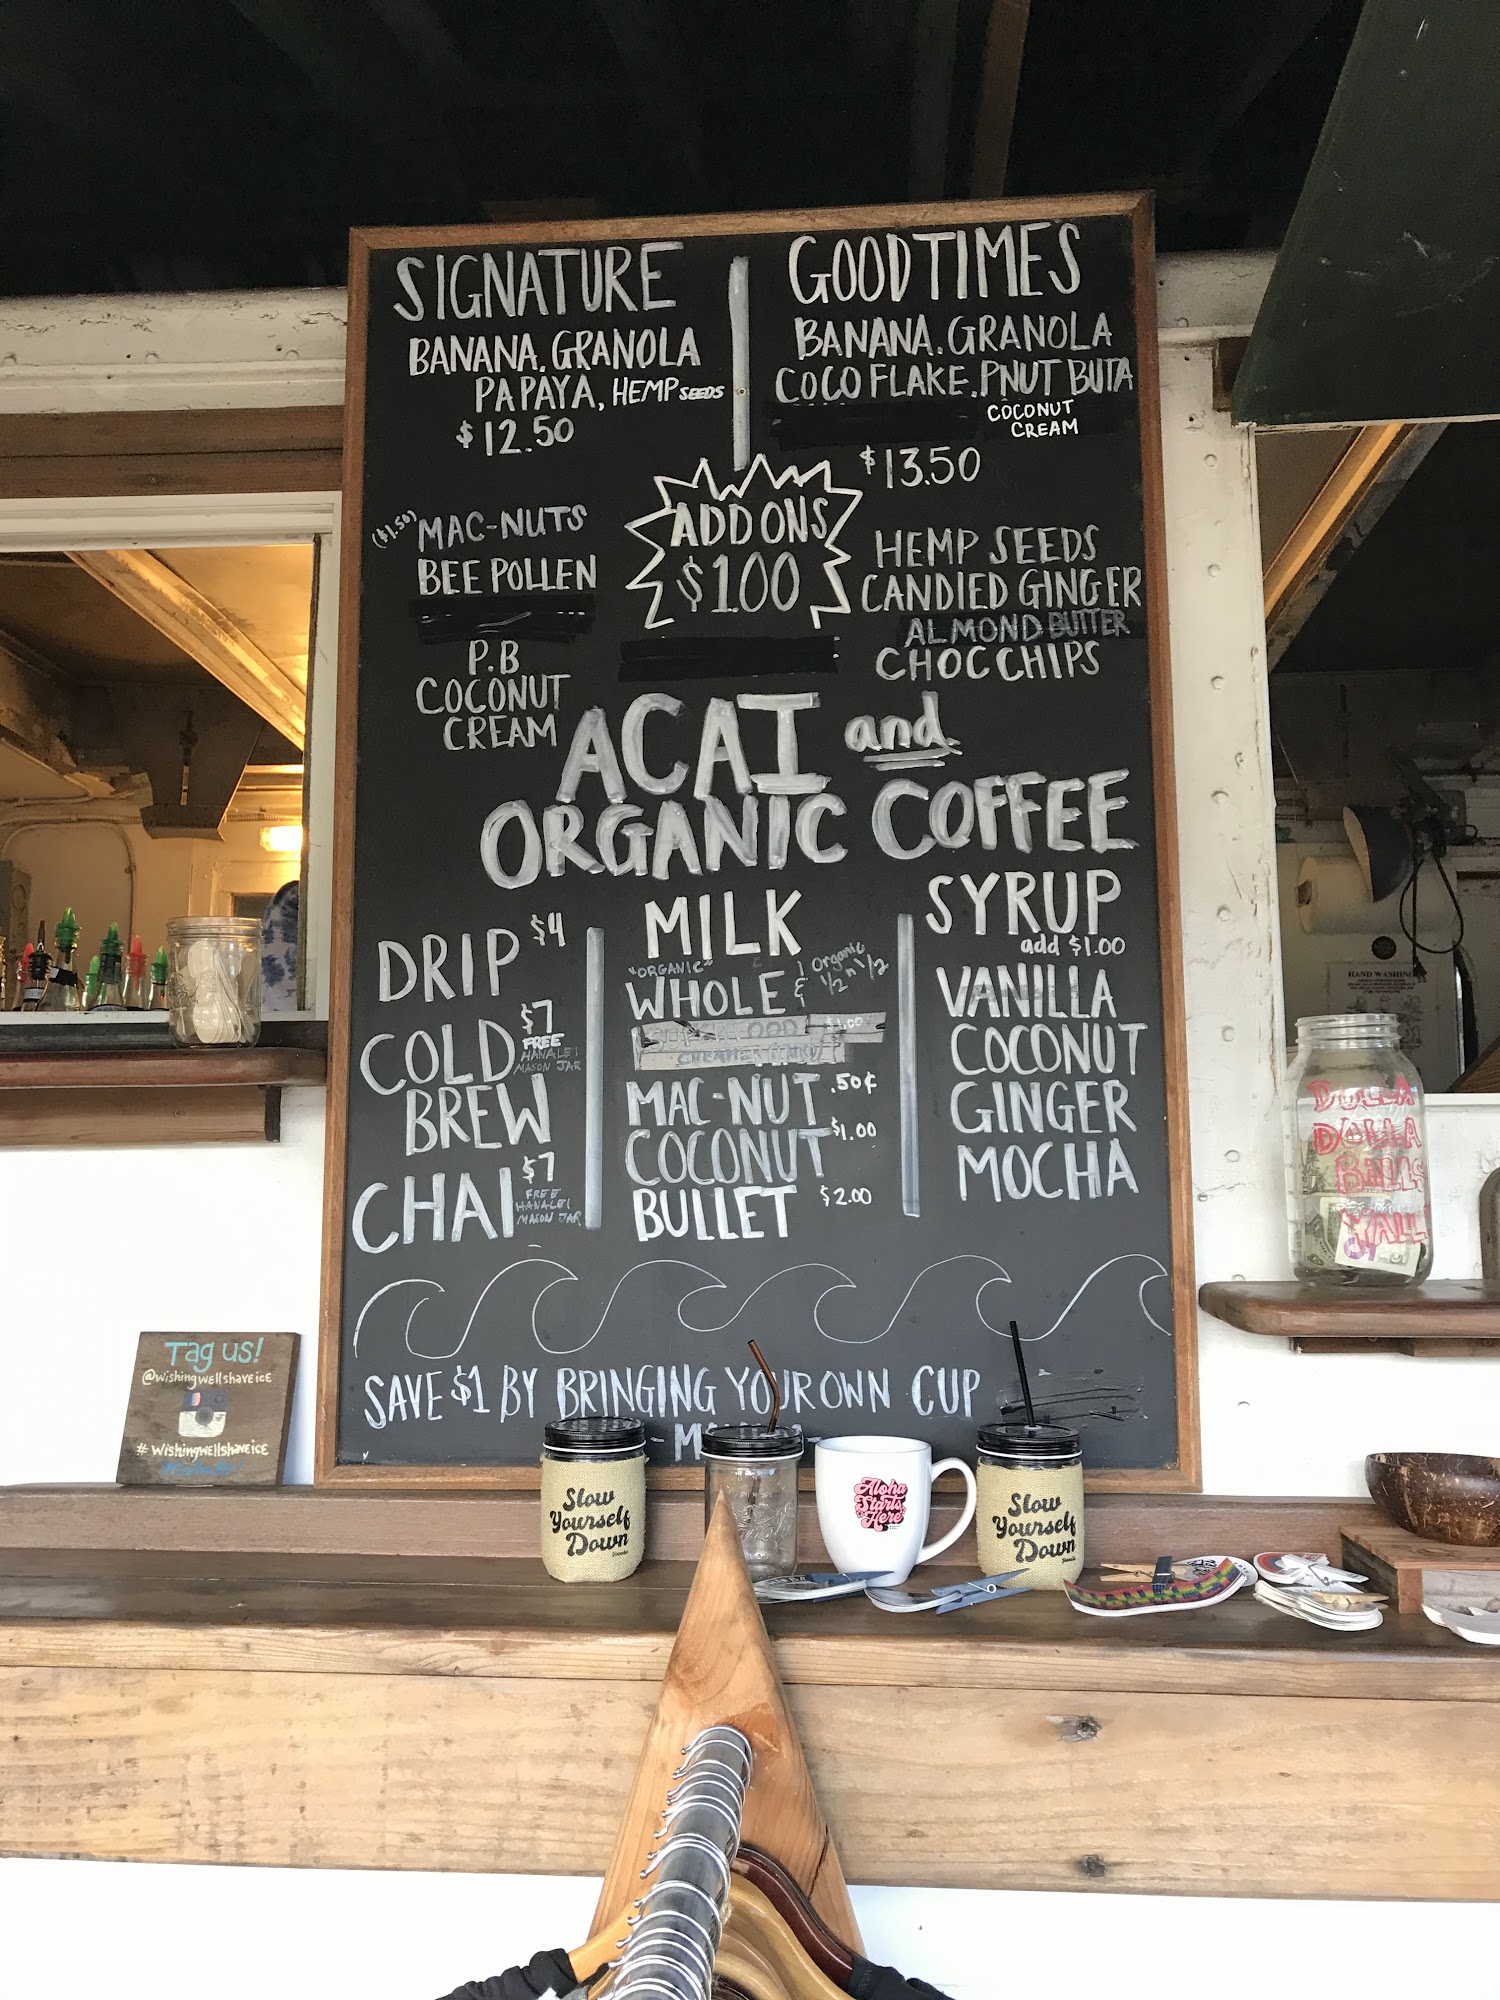 SIGNATURE
BANANA, GRANOLA
PAPAYA, HEMP SEEDS
$12.50
GOODTIMES
BANANA, GRANOLA
COCO FLAKE, PNUT BUTA
COCONUT
CREAM
$13.50
ADD ONS
$1.00
($1.50) MAC-NUTS
BEE POLLEN
P.B
COCONUT
CREAM
HEMP SEEDS
CANDIED GINGER
ALMOND BUTTER
CHOC CHIPS
ACAI and
ORGANIC COFFEE
DRIP $4
COLD BREW $7
FREE
HANALEI
MASON JAR
CHAI $7
FREE
HANALEI
MASON JAR
MILK
"ORGANIC"
WHOLE & Organic 1/2 n 1/2
$1.00
CREAMER
MAC-NUT .50¢
COCONUT $1.00
BULLET $2.00
SYRUP
add $1.00
VANILLA
COCONUT
GINGER
MOCHA
SAVE $1 BY BRINGING YOUR OWN CUP
Tag us!
@wishingwellshaveice
#wishingwellshaveice
Slow
Yourself
Down
Aloha
Starts
Here
Slow
Yourself
Down
DOLLA
DOLLA
BILLS
Y'ALL
HAND WASHING